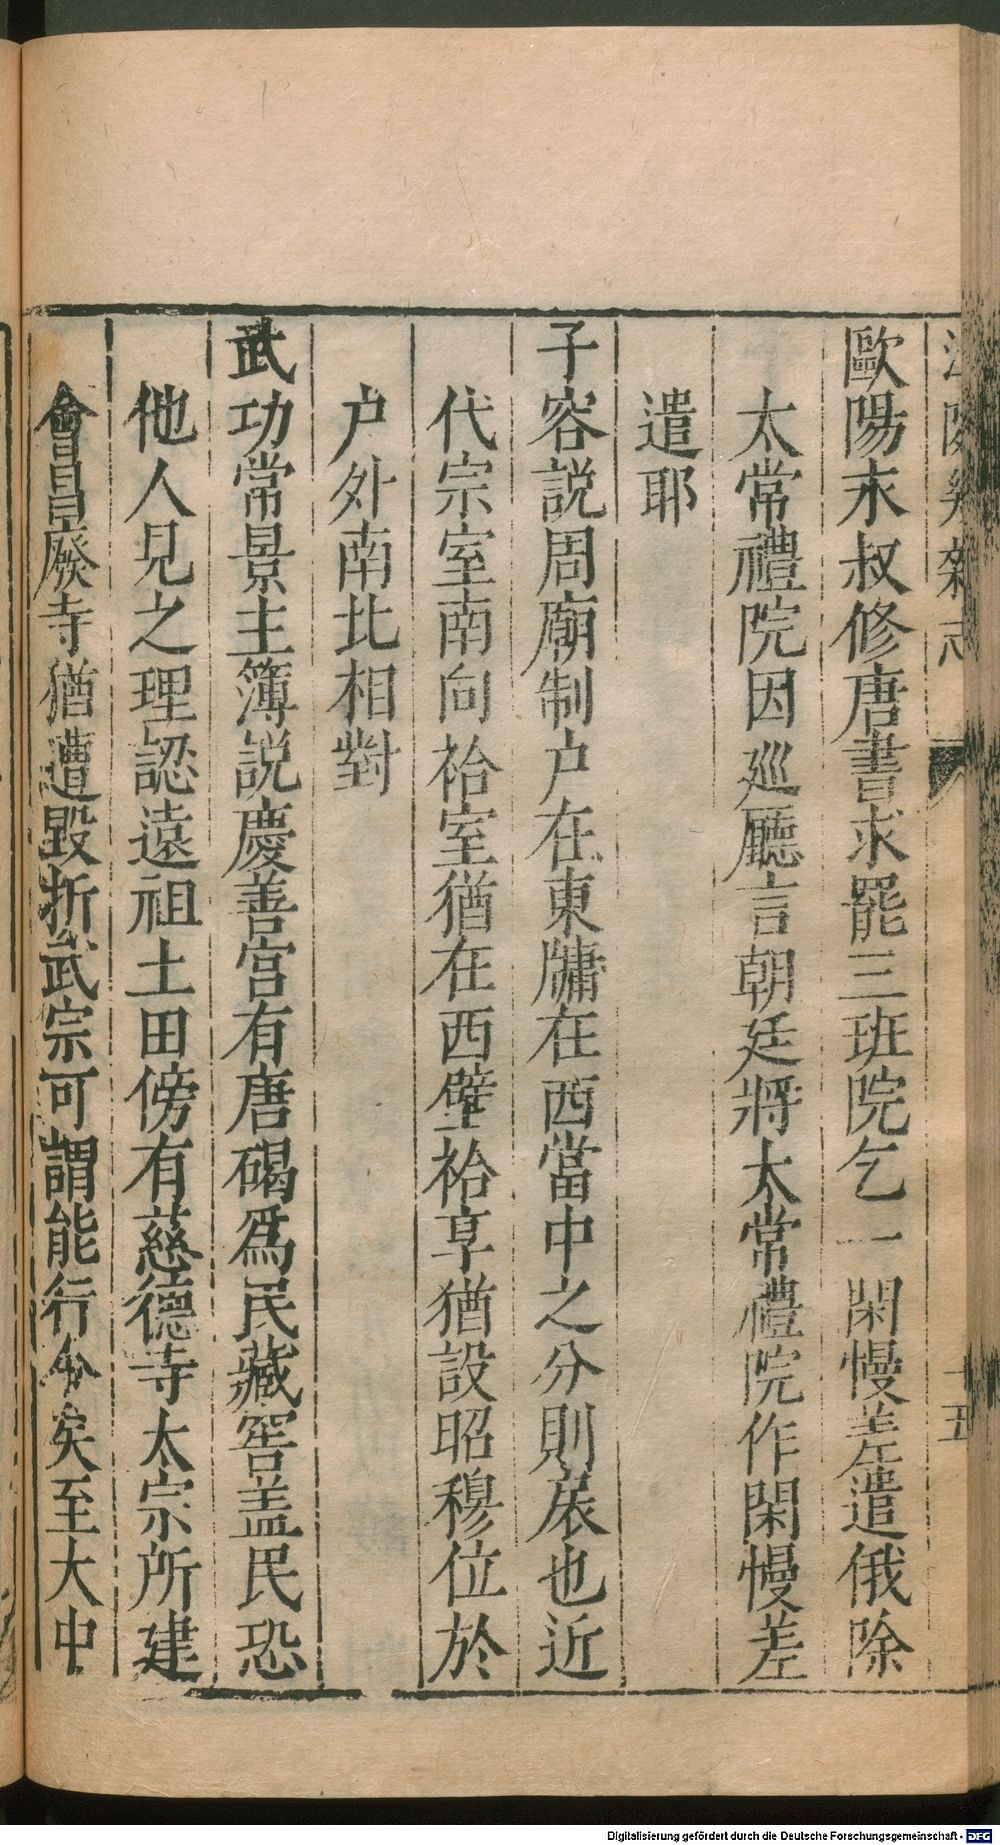 歐陽永叔修唐書求罷三班院乞一閑慢差遣俄除
太常禮院因廵廳言朝廷將太常禮院作閑慢差
遣耶
子容説周廟制户在東牖在西當中之分則扆也近
代宗室南向祫室猶在西壁祫享猶設昭穆位於
户外南北相對
武功常景主簿説慶善宫有唐碣爲民藏窖盖民恐
他人見之理認遠祖土田傍有慈德寺太宗所建
會昌廢寺猶遭毁折武宗可謂能行令矣至大中
雜志
十五
Digitalisierung gefördert durch die Deutsche Forschungsgemeinschaft - DFG